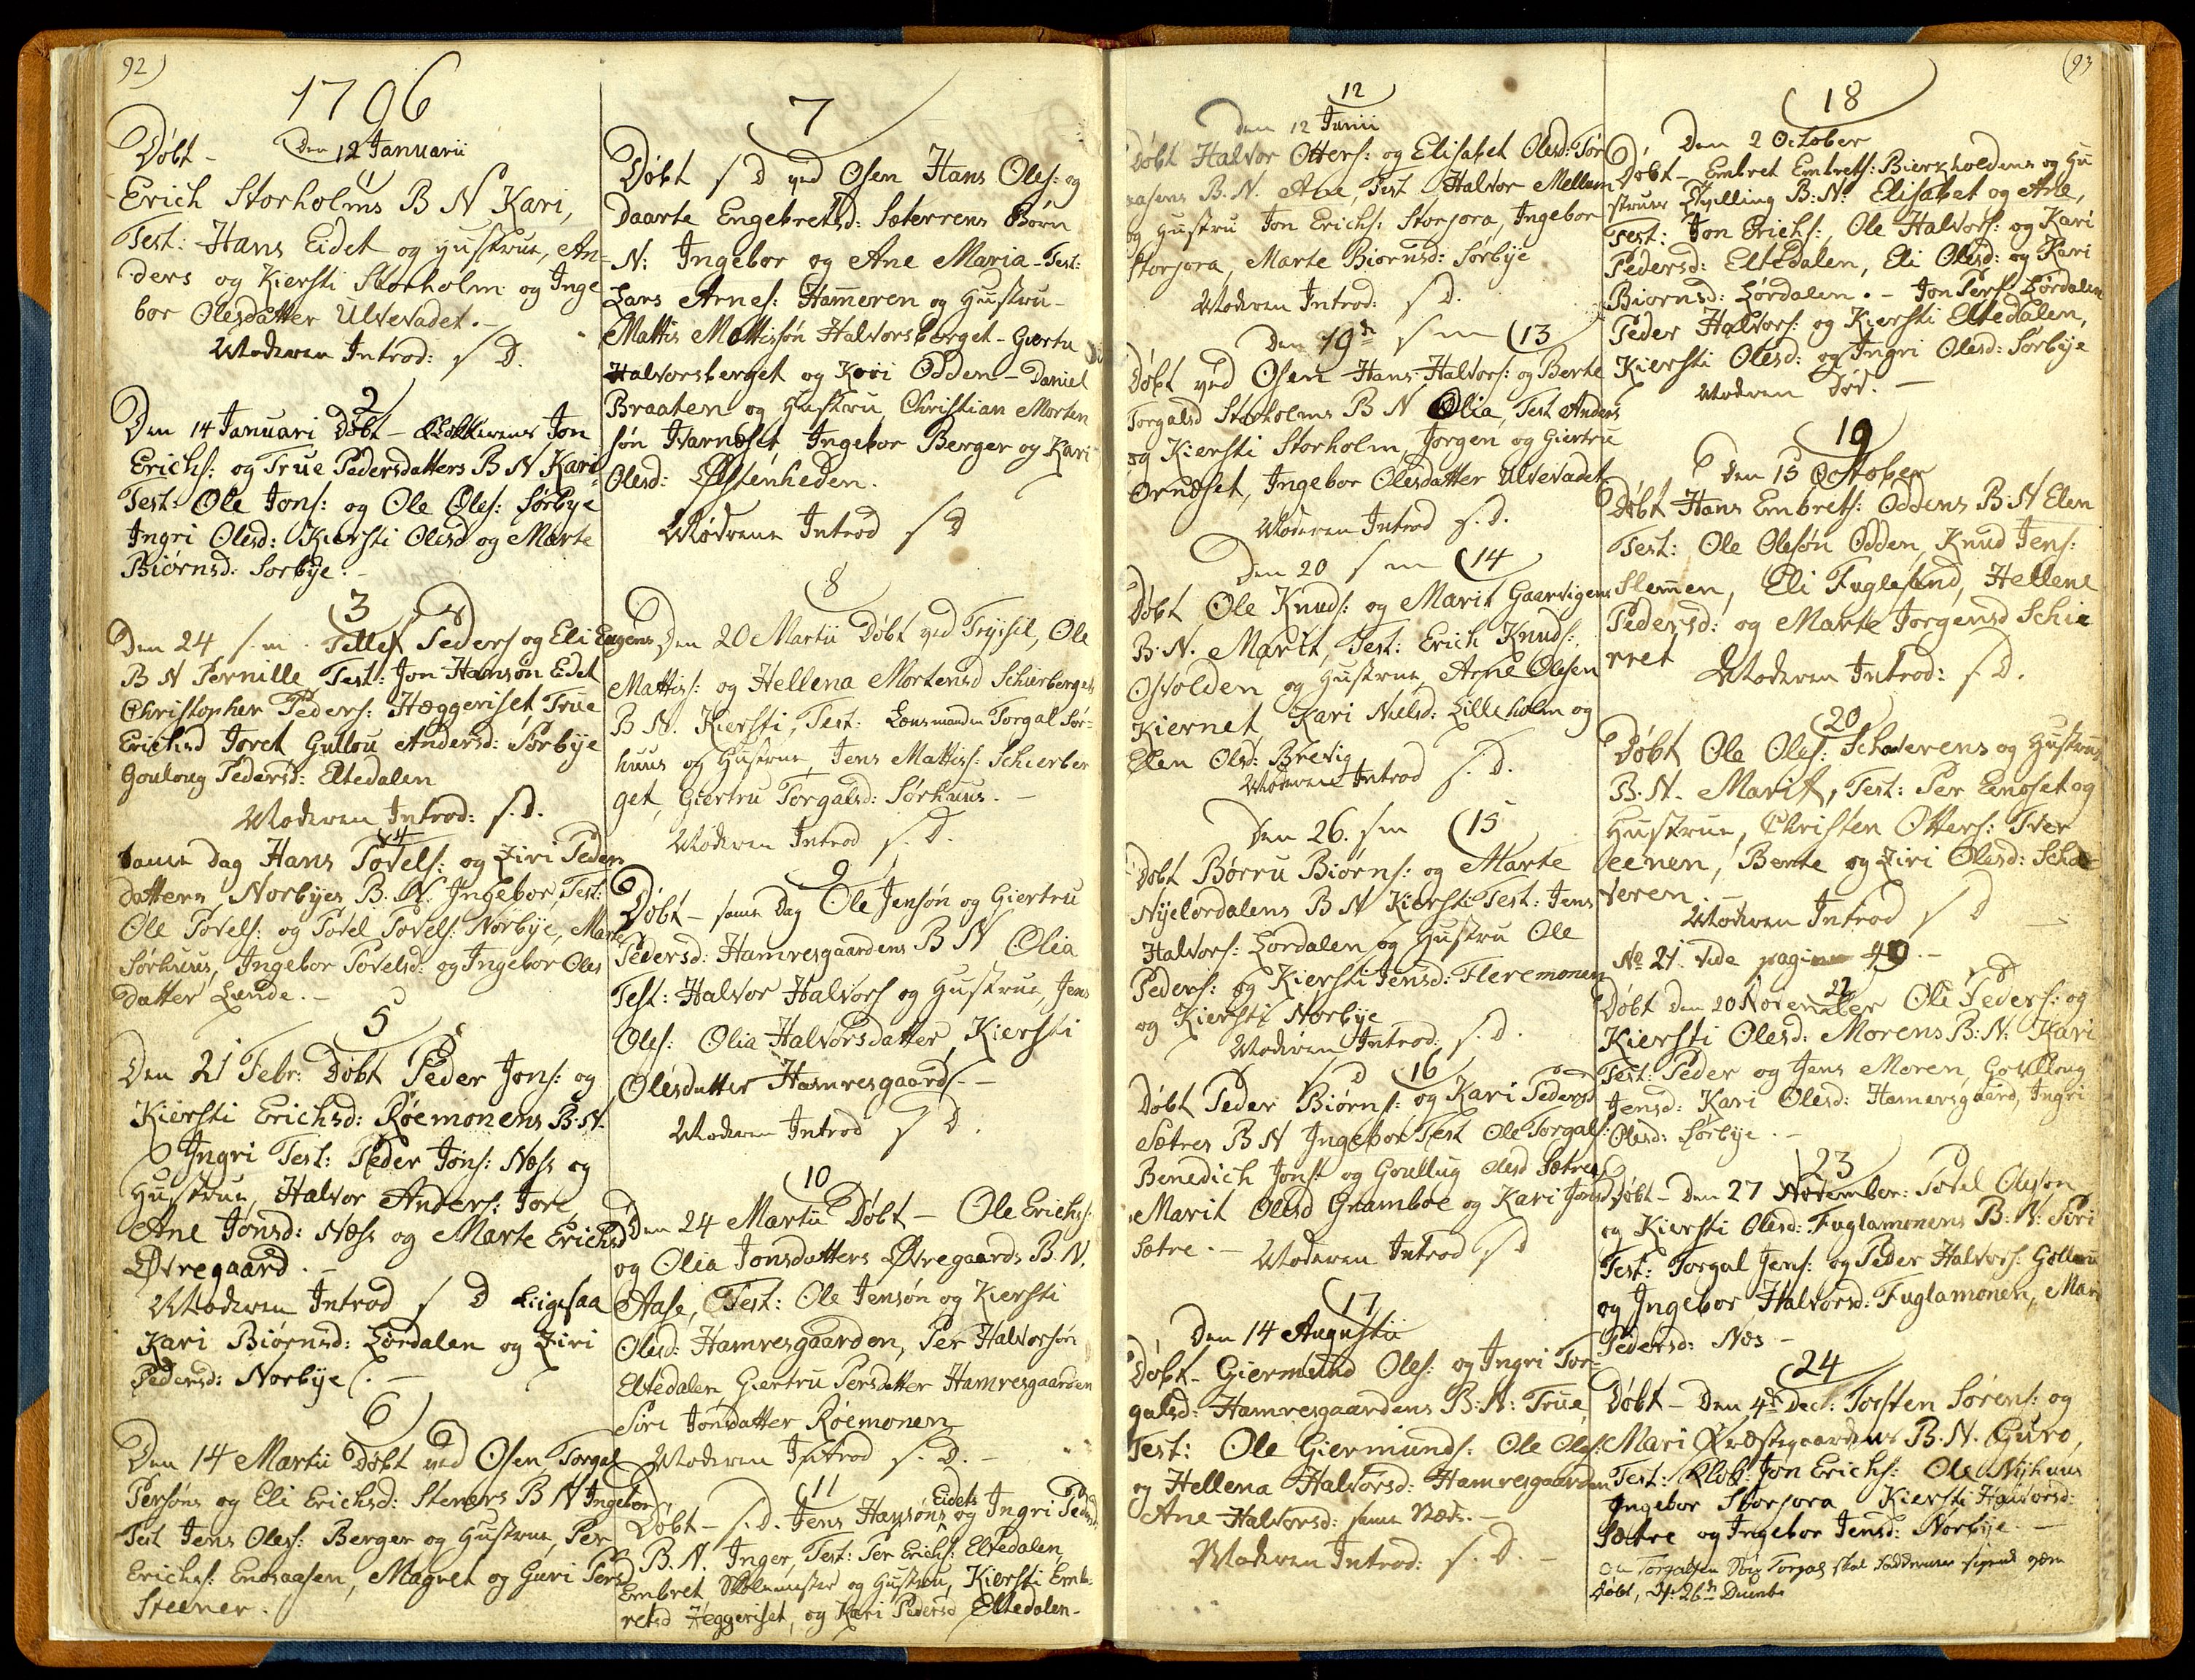 92)
1796
Døbt - Den 12 Januarii
Erich Storholms B N Kari,
Test: Hans Eidet og Hustrue, An=
ders og Kiersti Storholm og Inge
bor Olesdatter Ulvevadet.-
Moderen Introd: s D.
2
Den 14 Januari Døbt - Jon
Erichs: og True Pedersdatters B N Kari
Test: Ole Jons: og Ole Oles: Sørbye
Ingri Olesd: Kiersti Olesd og Marte
Biørnsd: Sørbye.-
3
Den 24 s. m. Tellef Peders og Eli Engens
B N Pernille Test: Jon Hansøn Eidet
Christopher Peders: Hæggeriset True
Erichsd Joret Gullou Andersd: Sørbye
Gouloug Pedersd: Eltedalen
Moderen Introd: s. D.
4
Samme dag Hans Povels: og Ziri Peders
datters Norbyes B. N. Ingebor, Test:
Ole Povels: og Povel Povels: Norbye, Marte
Sørhuus, Ingebor Povelsd: og Ingebor Oles
datter Lunde.-
5
Den 21 Febr: Døbt Peder Jons: og
Kiersti Erichsd: Røemonens B: N.
Ingri Test: Peder Jøns: Næss og
Hustrue, Halvor Anders: Jore
Ane Jonsd: Næss og Marte Erichsd
Øvregaard.-
Moderen Introd s D Ligesaa
Kari Biørnsd: Lørdalen og Ziri
Pedersd: Norbye.-
6
Den 14 Martii Døbt ved Osen Torgal
Persøns og Eli Erichsd: Steners B N Ingebor,
Test Jens Oles: Berger og Hustrue, Per
Erichs: Enosaasen, Magnet og Guri Persd
Steener.
7
Døbt s D ved Osen Hans Oles: og
Daarte Engebretsd: Sæterrens Børn
N: Ingebor og Ane Maria - Test:
Lars Arnes: Hameren og Hustru-
Mattis Mattisøn Halvorsberget - Giertru
Halvorsberget og Kari Odden - Daniel
Braaten og Hustru, Christian Morten
søn Ivarnæset, Ingebor Berger og Kari
Olesd: Østenheden.
Mødrene Introd s D
8
Den 20 Martii Døbt ved Trysil, Ole
Mattiss: og Hellena Mortensd Schierbergets
B N. Kiersti, Test: Lensmanden Torgal Sør-
huus og Hustrue, Jens Mattiss: Schierber
get, Giertru Torgalsd: Sørhuus.-
Moderen Introd s. D.
9
Døbt - samme dag Ole Jensøn og Giertru
Pedersd: Hamresgaardens B N Olia
Test: Halvor Halvors og Hustrue, Jens
Oles: Olia Halvorsdatter, Kiersti
Olesdatter Hamresgaard.-
Moderen Introd s D.
10
Den 24 Martii Døbt - Ole Erichs:
og Olia Jonsdatters Øvregaards B. N.
Aase, Test: Ole Jensøn og Kiersti
Olesd: Hamresgaarden, Per Halvorsøn
Eltedalen, Giertru Persdatter Hamresgaarden
Siri Jonsdatter Røemonen
Moderen Introd s. D.-
11
Døbt - s. D. Jens Hansøns Eidets og Ingri Pedersd
B. N. Inger, Test: Per Erichs: Eltedalen,
Embret Skolemester og Hustrue, Kiersti Emb
retsd Heggeriset, og Kari Pedersd Eltedalen-
(93
12
den 12 Junii
Døbt Halvor Otters: og Elisabet Olesd: Tør
aasens B. N. Ane, Test Halvor Mellum
og Hustru Jon Erichs: Storjora, Ingebor
Storjora, Marte Biørnsd: Sørbye
Moderen Introd: s D.
Den 19de s m 13
Døbt ved Osen Hans Halvors: og Berte
Torgalsd Storholms B N Olia, Test Anders
og Kiersti Storholm, Jorgen og Giertrue
Ornæset, Ingebor Olesdatter Ulvevadet
Moderen Introd s. D.
Den 20 s m 14
Døbt Ole Knuds: og Marit Gaarvigens
B. N. Marit, Test: Erich Knuds:
Osvolden og Hustrue, Arne Olesen
Kiernet, Kari Nielsd: Lilleholm og
Elen Olsd: Brevig
Moderen Introd s. D.
Den 26. s m 15
Døbt Børru Biørns: og Marte
Nyelørdalens B N Kiersti Test: Jens
Halvors: Lørdalen og Hustru Ole
Peders: og Kiersti Jensd: Fleremonen
og Kiersti Norbye
Moderen Introd. s. D.
s D 16
Døbt Peder Biørns: og Kari Pedersd
Sætres B N Ingebor Test Ole Torgals:
Benedich Jons: og Goullug Olesd Sætre,
Marit Olesd Gramboe og Kari Jonsd
Sætre.- Moderen Introd s D
17
Den 14 Augustii
Døbt - Giermund Oles: og Ingri Tor-
galsd: Hamresgaardens B: N: True,
Test: Ole Giermunds: Ole Oles:
og Hellena Halvorsd: Hamresgaarden
Ane Halvorsd: samme stæds.-
Moderen Introd: s. D.-
18
Den 2 October
Døbt - Embret Embrets: Bierkholdens og Hu
strues Tvilling B: N: Elisabet og Ane,
Test: Jon Erichs:, Ole Halvors: og Kari
Pedersd: Eltedalen, Eli Olesd: og Kari
Biørnsd: Lørdalen.- Jon Pers: Lørdalen
Peder Halvors: og Kiersti Eltedalen,
Kiersti Olesd: og Ingri Olesd: Sørbye
Moderen død.-
19
Den 15 October
Døbt Hans Embrets: Oddens B: N Elen
Test: Ole Olesøn Odden, Knud Jens:
Slemmen, Eli Fuglesund, Hellene
Pedersd: og Marte Jorgensd Schie
rret
Moderen Introd: s D.
20
Døbt Ole Oles: Schaaerens og Hustrues
B. N. Marit, Test: Per Enoset og
Hustrue, Christen Otters: Tver
eenen, Bente og Ziri Olesd: Scha
veren
Moderen Introd s D
No 21. Vide pagina 49.-
22
Døbt den 20 November Ole Peders: og
Kiersti Olesd: Morens B: N: Kari
Test: Peder og Jens Moren, Goulloug
Jensd: Kari Olesd: Hamersgaard, Ingri
Olesd: Sørbye.-
23
Døbt - Den 27 November: Povel Olesøn
og Kiersti Olesd: Fuglamonens B: N: Siri
Test: Torgal Jens: og Peder Halvors:
og Ingebor Halvorsd: Fuglamonen, Mari
Pedersd: Næs -
24
Døbt - Den 4de Dec: Torsten Sørens: og
Mari Præstgaardens B. N. Guro,
Test: Klok: Jon Erichs: Ole Nyhuus
Ingebor Storjora Kiersti Halvorsd:
Sætre og Ingebor Jensd: Norbye.-
Ole Torgalsen Søn Torgal skal
Døbt, d: 26de Decemb: